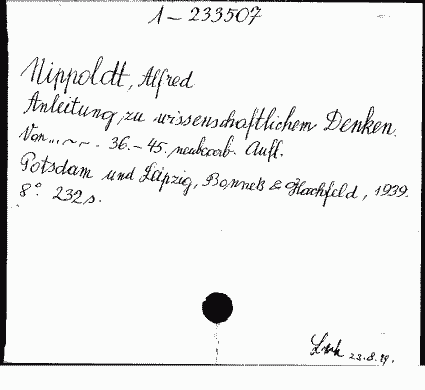 1 - 233507
Nippoldt, Alfred
Anleitung zu wissenschaftlichem Denken.
Von ... ~ ~ . 36. - 45. neubearb. Aufl.
Potsdam und Leipzig, Bonneß & Hachfeld, 1939.
8° 232 s.
23.8.39.